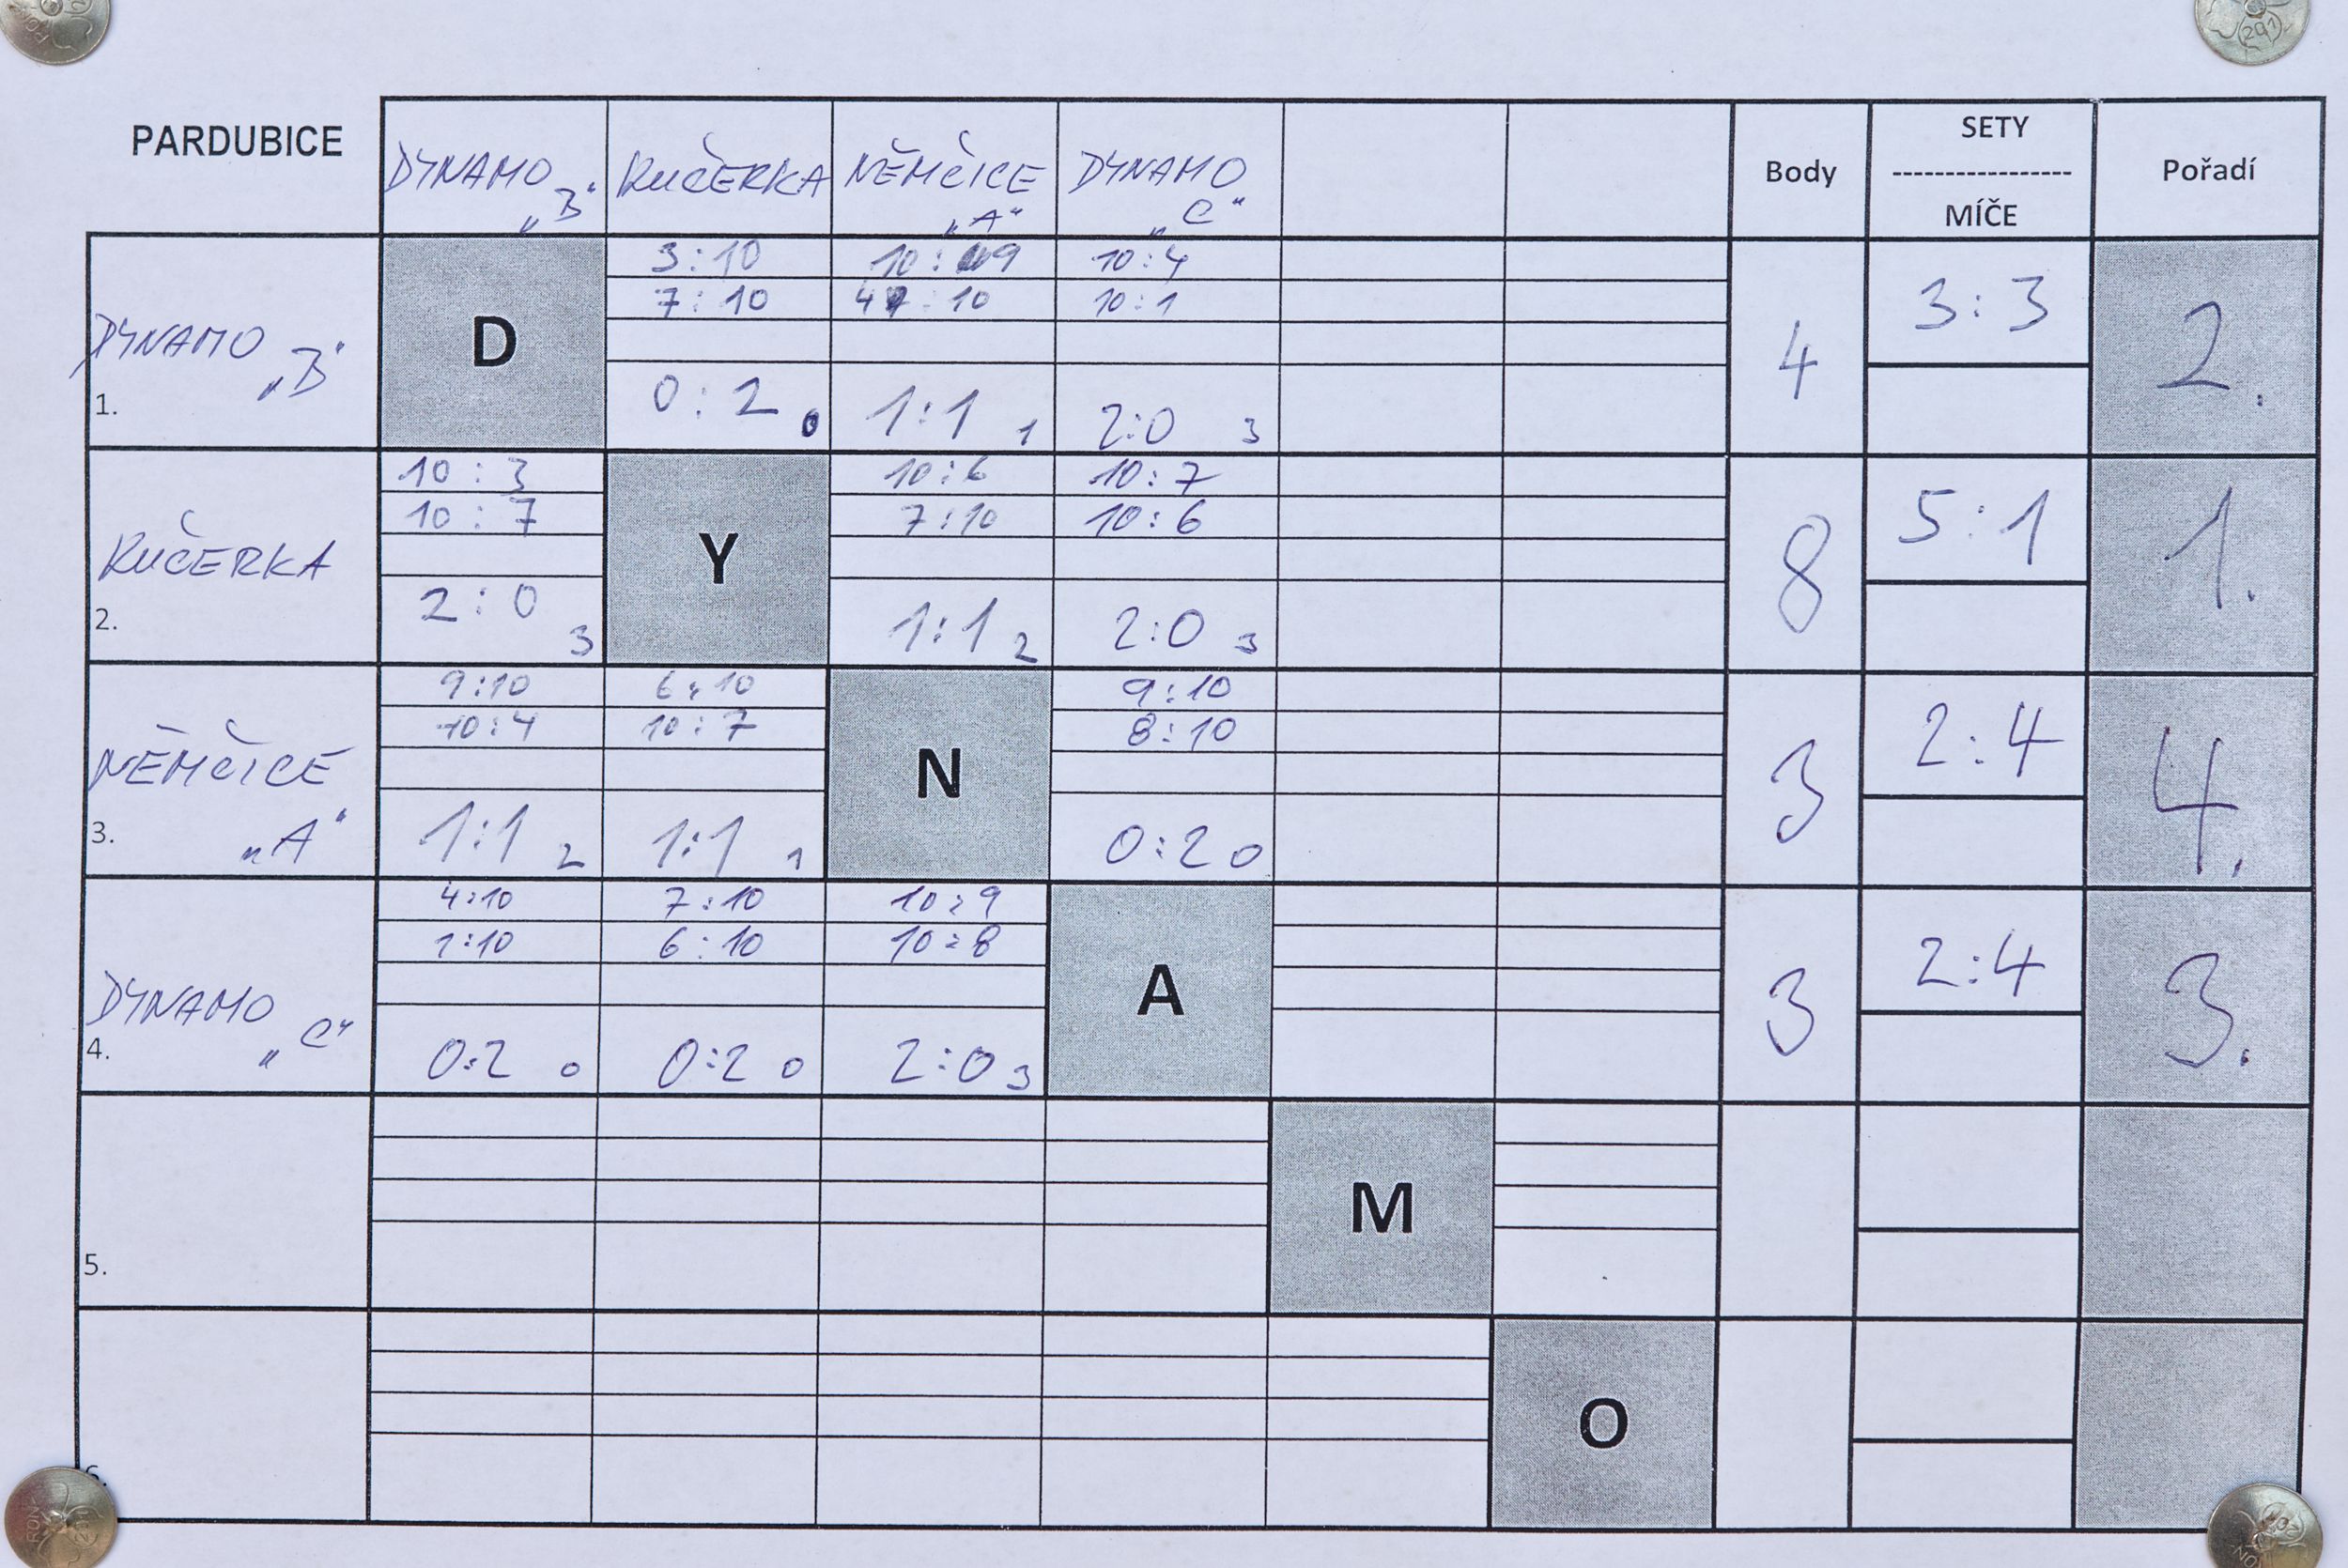 PARDUBICE
DYNAMO „B“
KUČERKA
NĚMČICE „A“
DYNAMO „C“
Body
SETY
MÍČE
Pořadí
1. DYNAMO „B“
D
3:10
10:9
10:4
7:10
4:10
10:1
0:2 0
1:1 1
2:0 3
4
3:3
2.
2. KUČERKA
10:3
Y
10:6
10:7
10:7
7:10
10:6
2:0 3
1:1 2
2:0 3
8
5:1
1.
3. NĚMČICE „A“
9:10
6:10
N
9:10
10:4
10:7
8:10
1:1 2
1:1 1
0:2 0
3
2:4
4.
4. DYNAMO „C“
4:10
7:10
10:9
A
1:10
6:10
10:8
0:2 0
0:2 0
2:0 3
3
2:4
3.
5.
M
6.
O